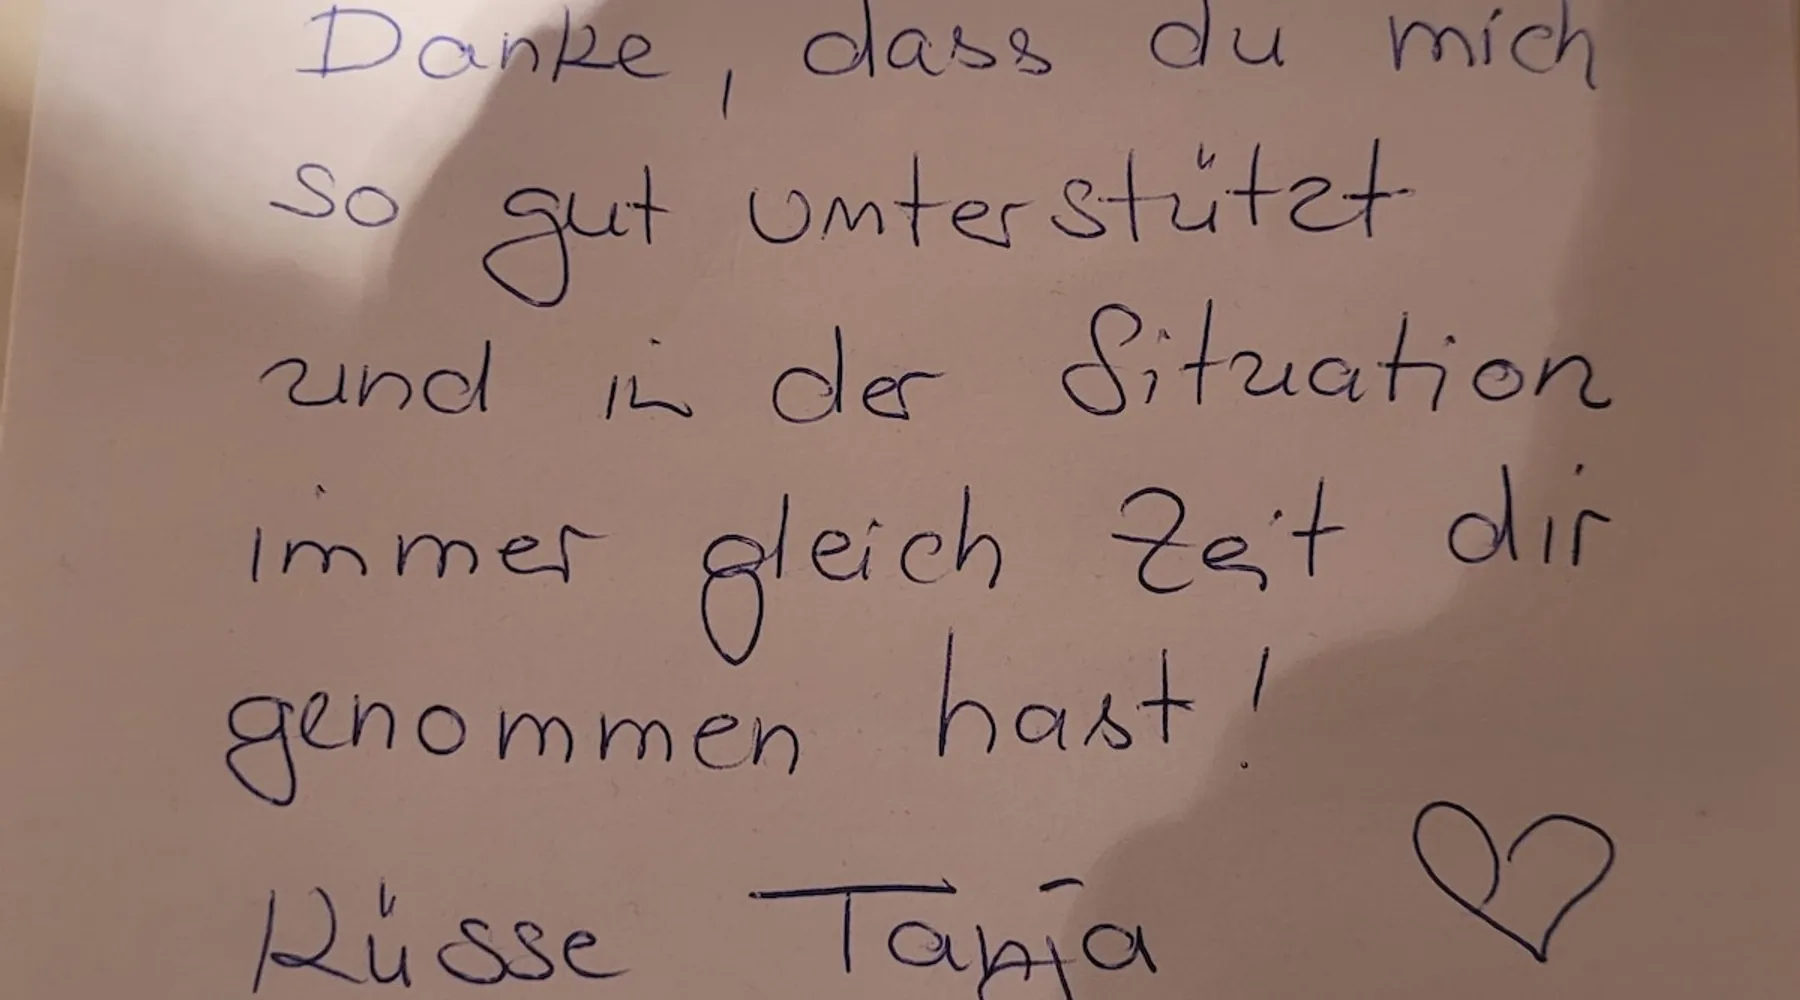 Danke, dass du mich
so gut unterstützt
und in der Situation
immer gleich Zeit dir
genommen hast!
Küsse Tanja